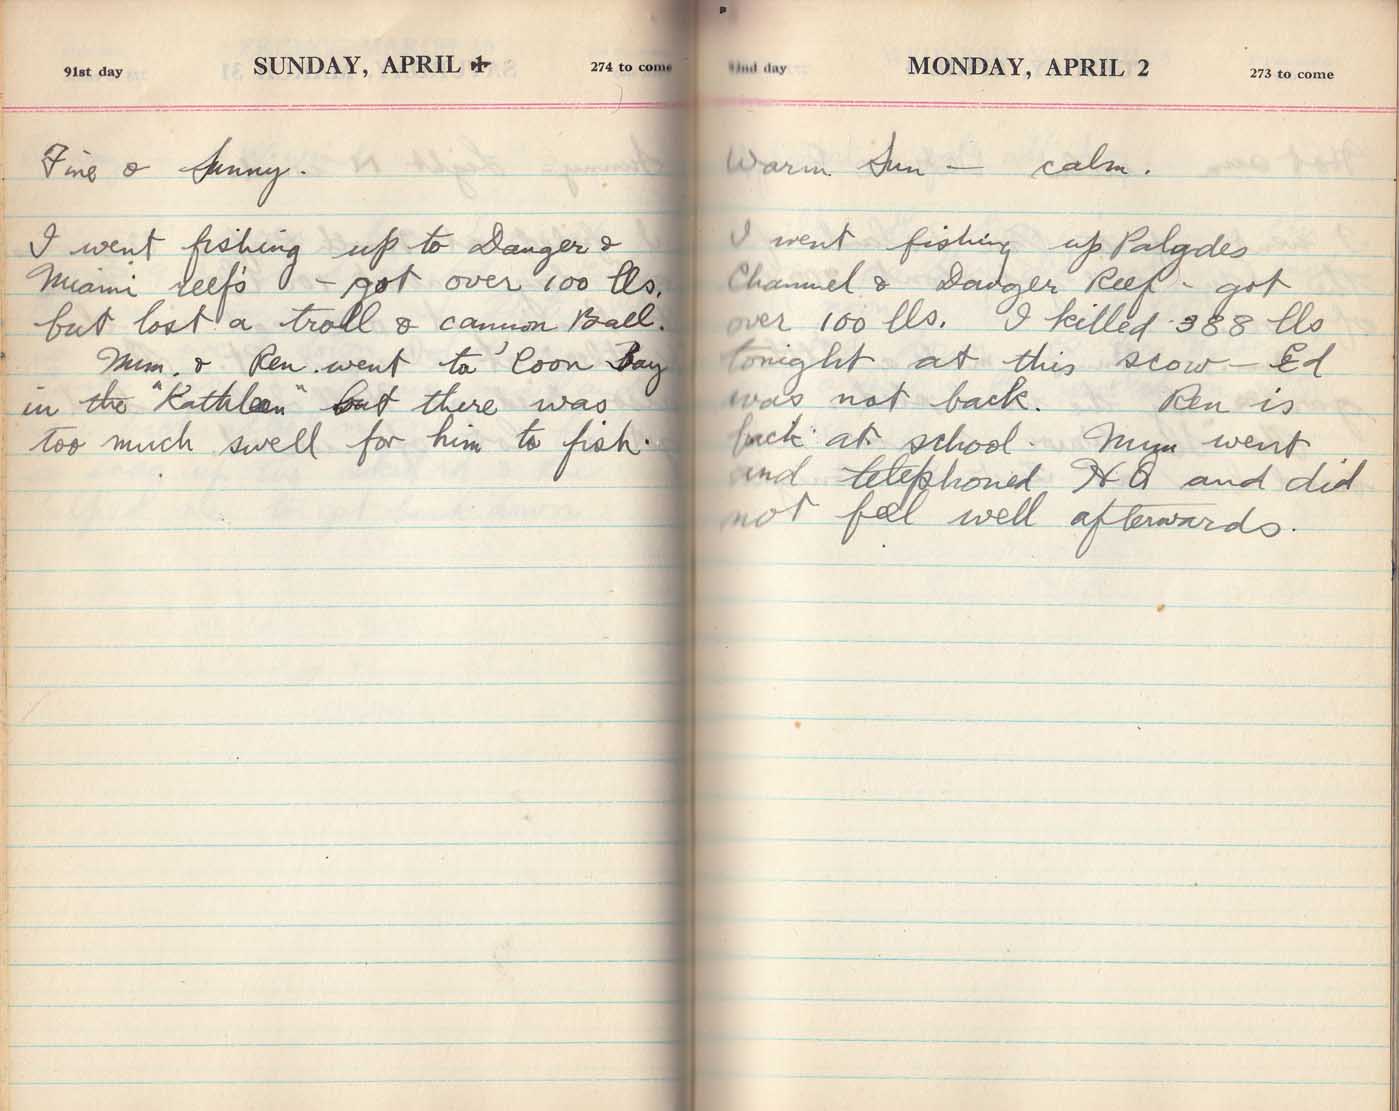 91st day SUNDAY, APRIL ✠ 274 to come
Fine & Sunny.
I went fishing up to Danger &
Miami reefs - got over 100 lbs.
but lost a troll & cannon Ball.
Mum. & Ren. went to 'Coon Bay
in the "Kathleen" but there was
too much swell for him to fish.
92nd day MONDAY, APRIL 2 273 to come
Warm Sun - calm.
I went fishing up Polydes
Channel & Danger Reef - got
over 100 lbs. I killed 388 lbs
tonight at this scow - Ed
was not back. Ren is
back at school. Mum went
and telephoned H Q and did
not feel well afterwards.